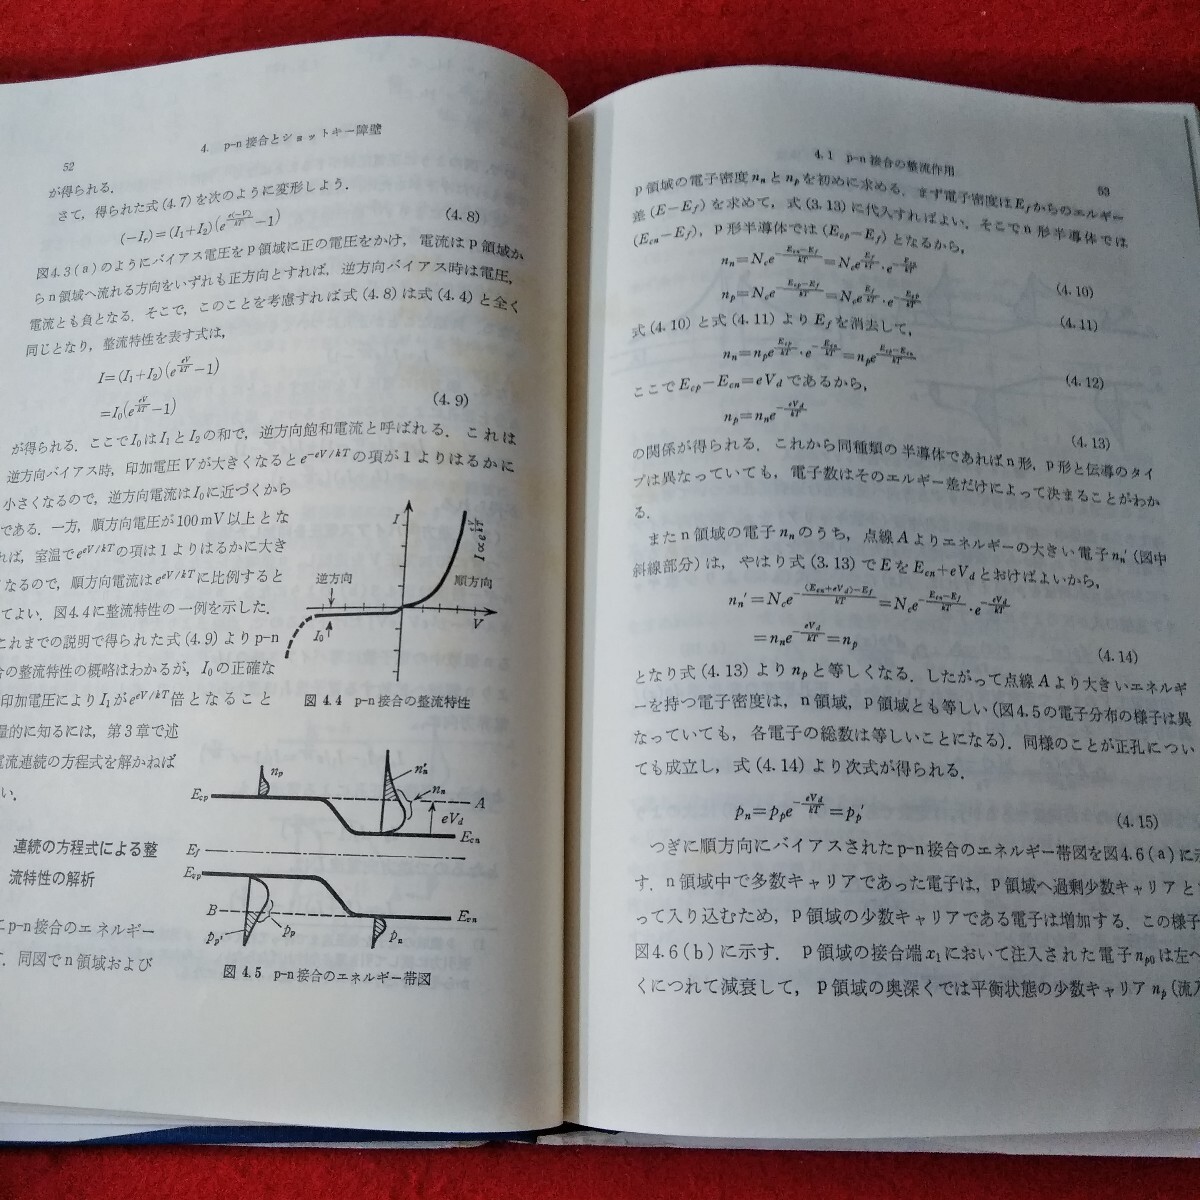 4. p-n 接合とショットキー障壁
52
が得られる.
さて, 得られた式(4.7)を次のように変形しよう.
(4.8)
図4.3(a)のようにバイアス電圧をp領域に正の電圧をかけ, 電流はp領域か
らn領域へ流れる方向をいずれも正方向とすれば, 逆方向バイアス時は電圧,
電流とも負となる. そこで, このことを考慮すれば式(4.8)は式(4.4)と全く
同じとなり, 整流特性を表す式は,
I=(I₁+I₂)(e^{eV/kT}-1)
=I₀(e^{eV/kT}-1) (4.9)
が得られる. ここでI₀はI₁とI₂の和で, 逆方向飽和電流と呼ばれる. これは
逆方向バイアス時, 印加電圧Vが大きくなるとe^{-eV/kT}の項が1よりはるかに
小さくなるので, 逆方向電流はI₀に近づくから
である. 一方, 順方向電圧が100mV以上とな
れば, 室温でe^{eV/kT}の項は1よりはるかに大き
なるので, 順方向電流はe^{eV/kT}に比例すると
てよい. 図4.4に整流特性の一例を示した.
これまでの説明で得られた式(4.9)よりp-n
合の整流特性の概略はわかるが, I₀の正確な
印加電圧によりI₁がe^{eV/kT}倍となること
量的に知るには, 第3章で述
電流連続の方程式を解かねば
い.
I
I∝e^{eV/kT}
逆方向
順方向
V
I₀
図 4.4 p-n接合の整流特性
連続の方程式による整
流特性の解析
p-n接合のエネルギー
. 同図でn領域および
n_p
n_n'
n_n
E_{cp}
A
eV_d
E_{cn}
E_f
E_{cp}
B
E_{cn}
p_p'
p_p
p_n
図 4.5 p-n接合のエネルギー帯図
4.1 p-n接合の整流作用
53
p領域の電子密度n_nとn_pを初めに求める. まず電子密度はE_fからのエルギー
差(E-E_f)を求めて, 式(3.13)に代入すればよい. そこでn形半導体では
(E_{cn}-E_f), p形半導体では(E_{cp}-E_f)となるから,
n_n=N_c e^{-(E_{cn}-E_f)/kT}=N_c e^{E_f/kT}·e^{-E_{cn}/kT} (4.10)
n_p=N_c e^{-(E_{cp}-E_f)/kT}=N_c e^{E_f/kT}·e^{-E_{cp}/kT} (4.11)
式(4.10)と式(4.11)よりE_fを消去して,
n_n=n_p e^{E_{cp}/kT}·e^{-E_{cn}/kT}=n_p e^{(E_{cp}-E_{cn})/kT} (4.12)
ここでE_{cp}-E_{cn}=eV_dであるから,
n_p=n_n e^{-eV_d/kT} (4.13)
の関係が得られる. これから同種類の半導体であればn形, p形と伝導のタイ
プは異なっていても, 電子数はそのエルギー差だけによって決まることがわか
る.
またn領域の電子n_nのうち, 点線Aよりエネルギーの大きい電子n_n'(図中
斜線部分)は, やはり式(3.13)でEをE_{cn}+eV_dとおけばよいから,
n_n'=N_c e^{-((E_{cn}+eV_d)-E_f)/kT}=N_c e^{-(E_{cn}-E_f)/kT}·e^{-eV_d/kT}
=n_n e^{-eV_d/kT}=n_p (4.14)
となり式(4.13)よりn_pと等しくなる. したがって点線Aより大きいエネルギ
ーを持つ電子密度は, n領域, p領域とも等しい(図4.5の電子分布の様子は異
なっていても, 各電子の総数は等しいことになる). 同様のことが正孔につい
ても成立し, 式(4.14)より次式が得られる.
p_n=p_p e^{-eV_d/kT}=p_p' (4.15)
つぎに順方向にバイアスされたp-n接合のエネルギー帯図を図4.6(a)に示
す. n領域中で多数キャリアであった電子は, p領域へ過剰少数キャリアと
って入り込むため, p領域の少数キャリアである電子は増加する. この様子
図4.6(b)に示す. p領域の接合端x₁において注入された電子n_{p0}は左へ
くにつれて減衰して, p領域の奥深くでは平衡状態の少数キャリアn_p(流入